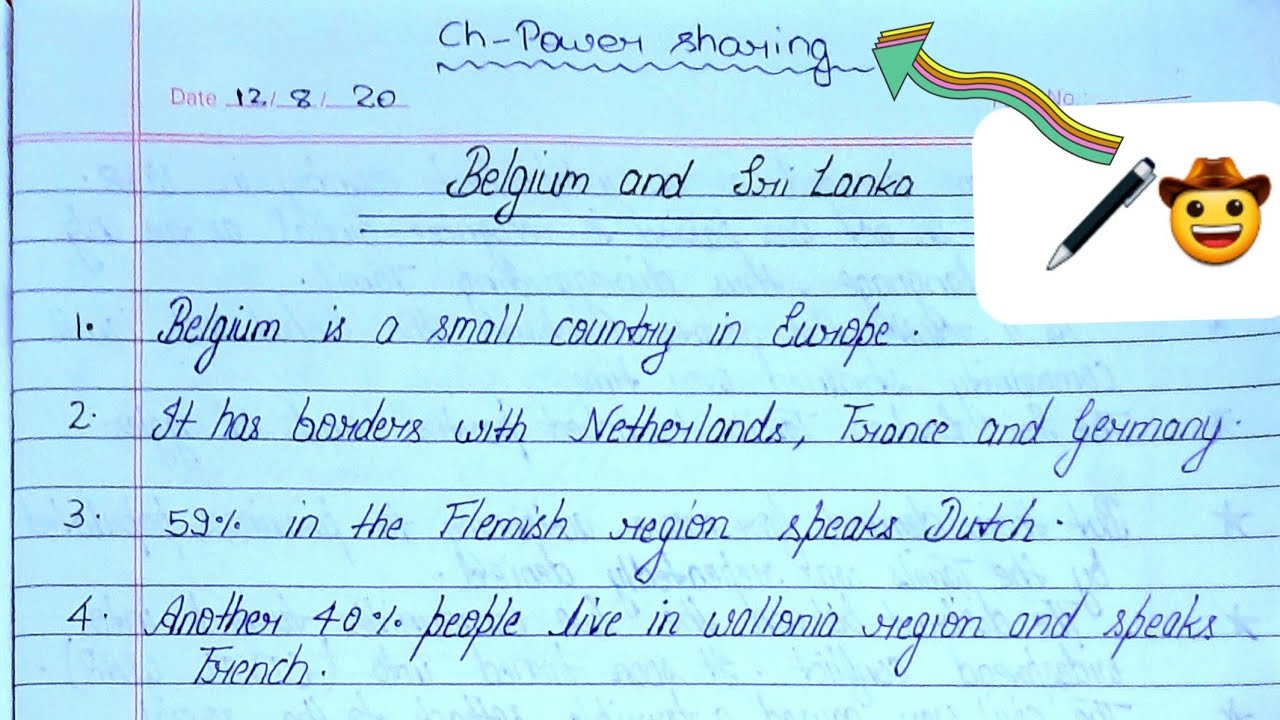 Ch-Power sharing
Date 12/8/20
No.:
Belgium and Sri Lanka
1. Belgium is a small country in Europe.
2. It has borders with Netherlands, France and Germany.
3. 59% in the Flemish region speaks Dutch.
4. Another 40% people live in wallonia region and speaks
French.